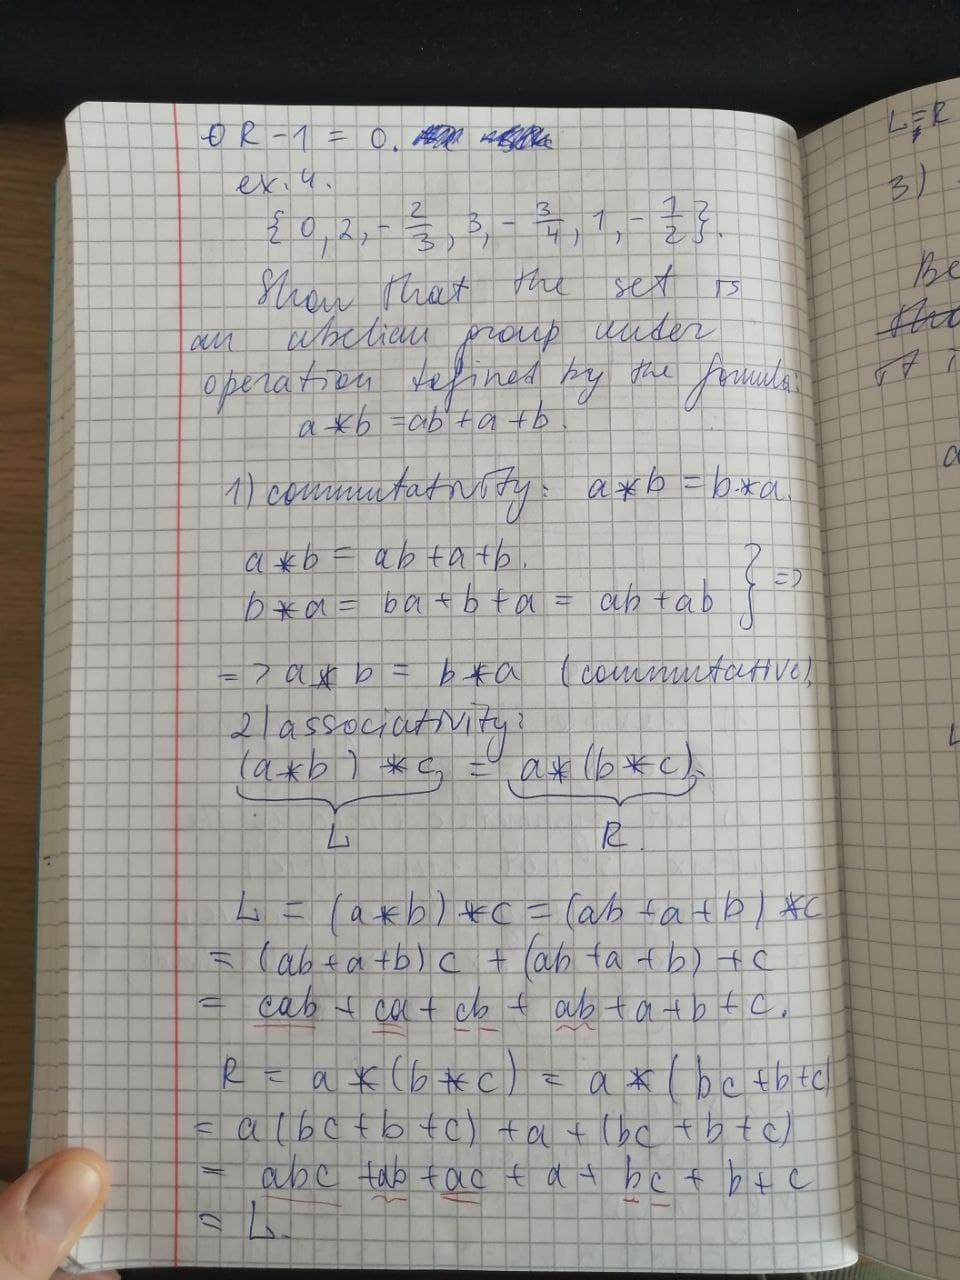 OR -1 = 0.
ex. 4.
{ 0, 2, -2/3, 3, -3/4, 1, -1/2 }.
Show that the set is
an abelian group under
operation defined by the formula:
a*b = ab + a + b.
1) commutativity: a*b = b*a.
a*b = ab + a + b.
b*a = ba + b + a = ab + ab } =>
=> a*b = b*a (commutative)
2) associativity:
(a*b)*c = a*(b*c).
L R.
L = (a*b)*c = (ab + a + b)*c
= (ab + a + b)c + (ab + a + b) + c
= cab + ca + cb + ab + a + b + c.
R = a*(b*c) = a*(bc + b + c)
= a(bc + b + c) + a + (bc + b + c)
= abc + ab + ac + a + bc + b + c
= L.
3)